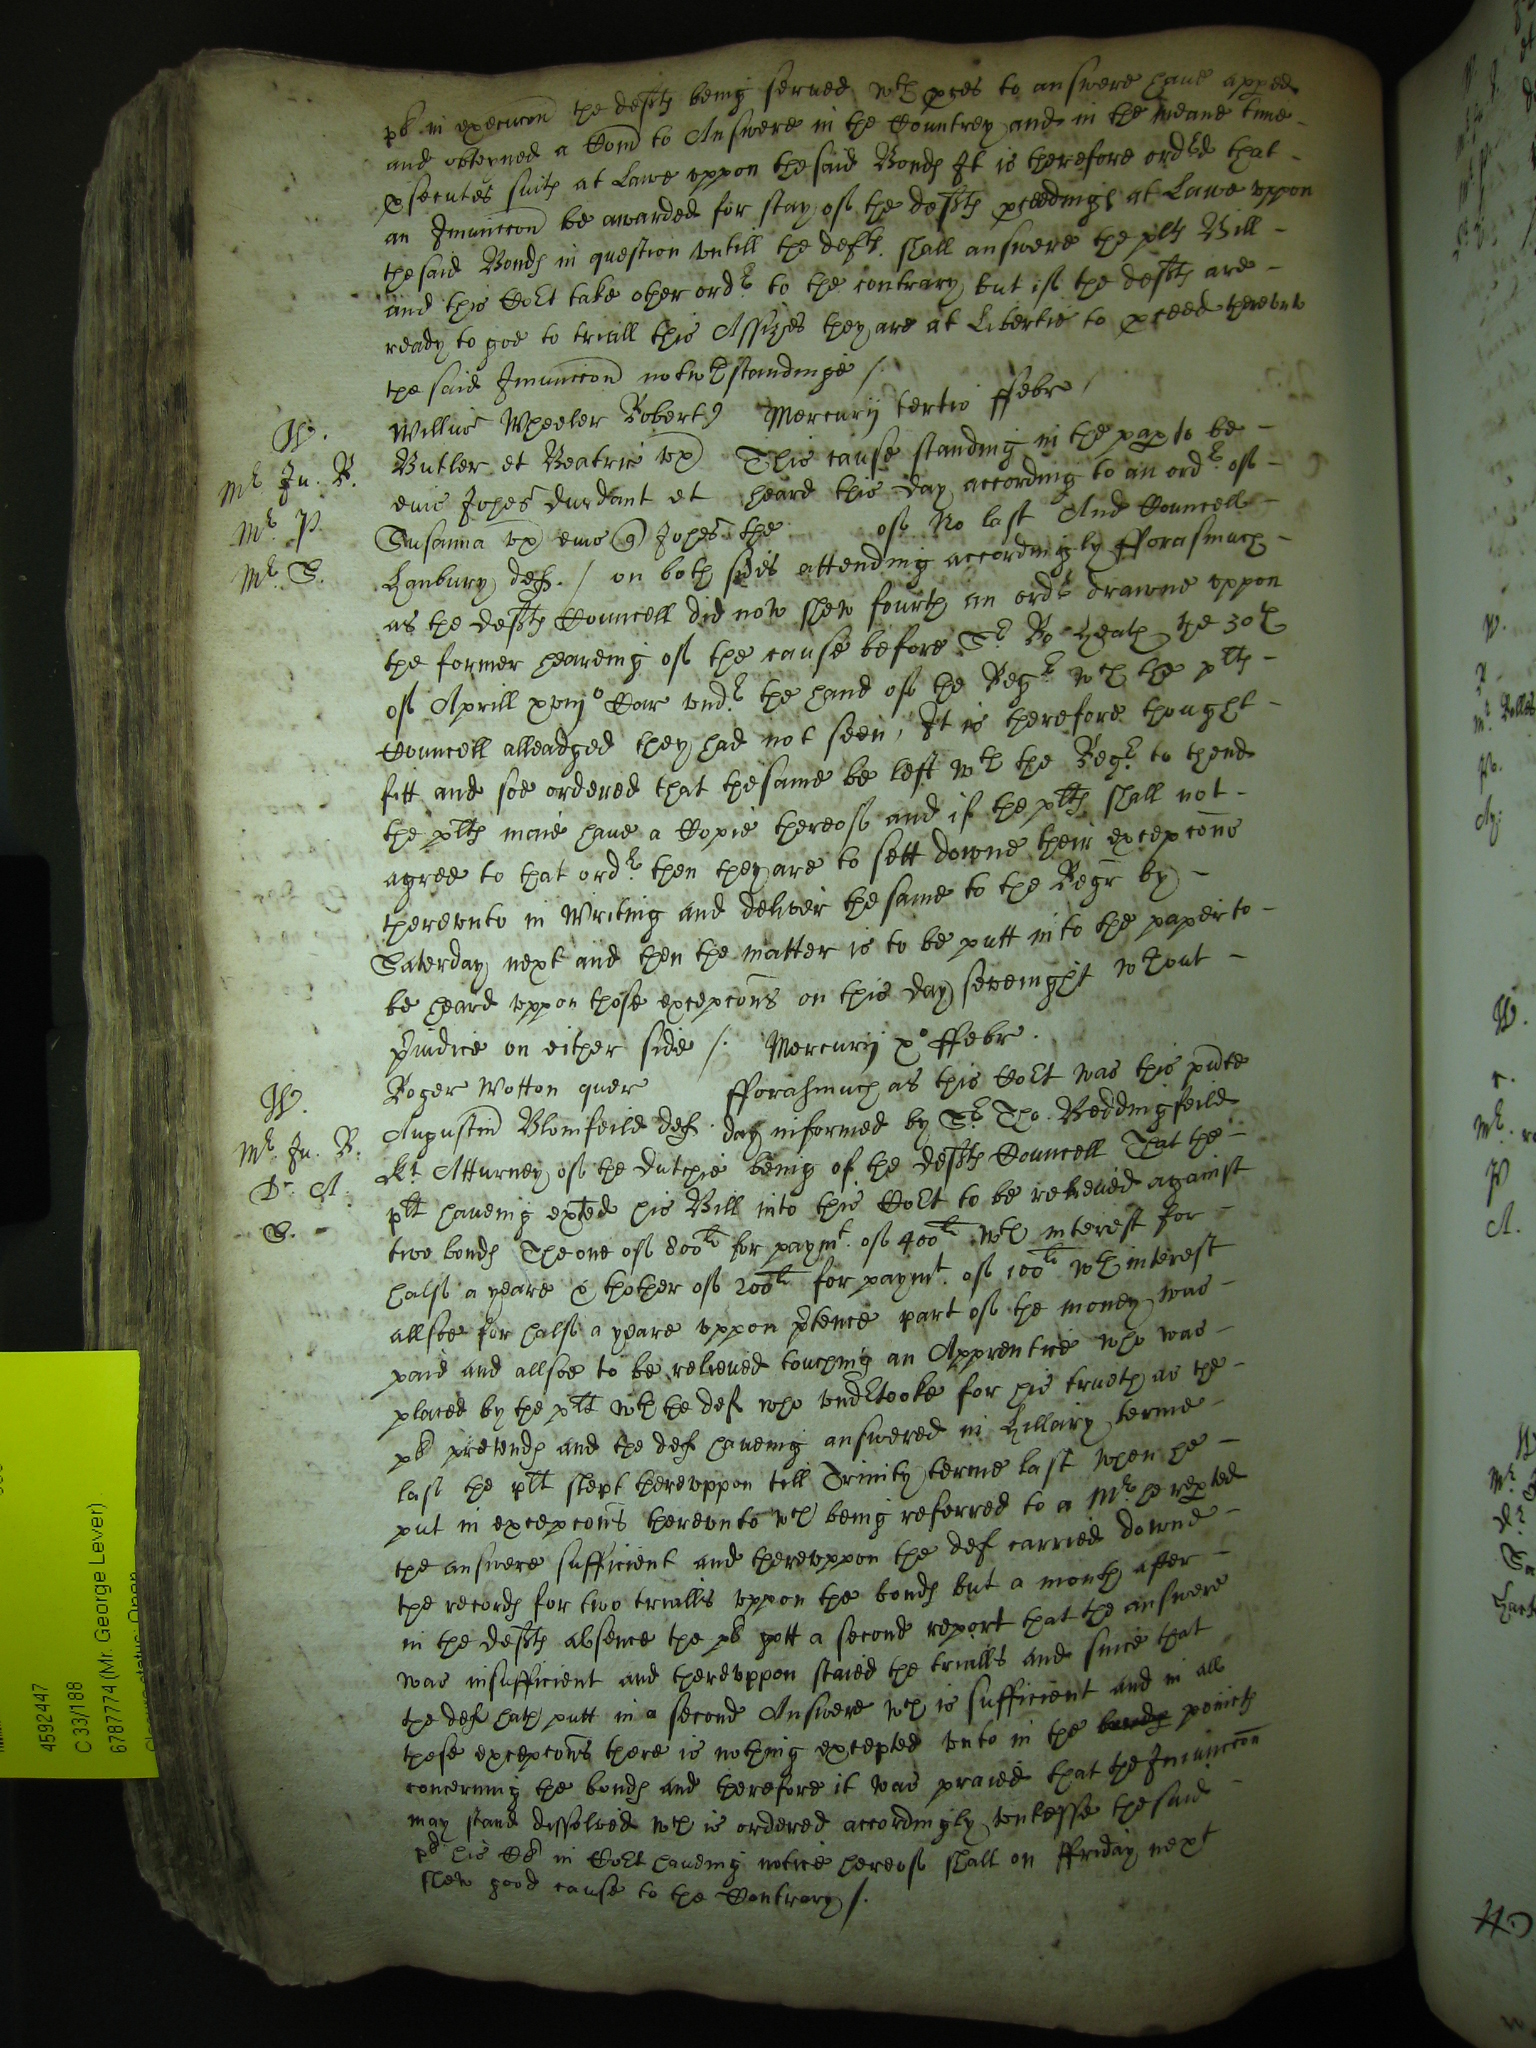 plt in execucon the defts being served wth pces to answere have apped
and obteyned a Com to Answere in the Countrey and in the meane tyme
psecutes suits at Lawe uppon the said Bonds It is therefore ordred that
an Iniunccon be awarded for stay of the defts pceedings at Lawe uppon
the said Bonds in question untill the defts shall answere the plts Bill
and this Cort take other ordr to the contrary but if the defts are
ready to goe to triall this Assizes they are at Libertie to pceed thereunto
the said Iniunccon notwthstandinge /.
W.
Mr Ju. B.
Mr P.
Mr S.
Willus Wheeler Robert9 Mercurij tertio ffebr /
Butler et Beatrix ux This cause standing in the pap to be
eius Johes Durdant et heard this day according to an ordr of
Susanna ux eius q Johes the of No last And Councell
Hanbury def. / on both sides attending accordingly fforasmuch
as the defts Councell did now shew fourth an ordr drawne uppon
the former heareing of the cause before Sr Ro Heath the 30th
of Aprill xviijo Car undr the hand of the Regr wch the plts
Councell alleadged they had not seen, It is therefore thought
fitt and soe ordered that the same be left wth the Regr to thend
the plts maie have a Copie thereof and if the plts shall not
agree to that ordr then they are to sett downe their excepcons
thereunto in Writing and deliver the same to the Regr by
Saterday next and then the matter is to be putt into the paper to
be heard uppon those excepcons on this day sevenight wthout
piudice on either side /. Mercurij xo ffebr.
W.
Mr Ju. B.
Dr A.
S.
Roger Wotton quer fforasmuch as this Cort was this pnte
Augustin Blomfeild def. day informed by Sr Tho. Beddingfeild
Kt Atturney of the Dutchie being of the defts Councell That the
plt haveing exhted his Bill into this Cort to be releived against
two bonds The one of 800li for paymt. of 400li wth interest for
half a yeare & thother of 200li for paymt. of 100li wth interest
allsoe for half a yeare uppon ptence part of the money was
paid and allsoe to be releived touching an Apprentice who was
placed by the plt wth the def who undrtooke for his trueth as the
plt pretends and the def haveing answered in Hillary terme
last the plt slept thereuppon till Trinity terme last when he
put in excepcons thereunto wch being referred to a Mr he repted
the answere sufficient and thereuppon the def carried downe
the records for two trialls uppon the bonds but a month after
in the defts absence the plt gott a second report that the answere
was insufficient and thereuppon staied the trialls and since that
the def hath putt in a second Answere wch is sufficient and in all
these excepcons there is nothing excepted unto in the bonds points
concerning the bonds and therefore it was praied that the Iniunccon
may stand dissolved wch is ordered accordingly unlesse the said
plt his Clk in Cort haveing notice hereof shall on ffriday next
shew good cause to the Contrary /.
4592447
C 33/188
6787774 (Mr. George Lever)